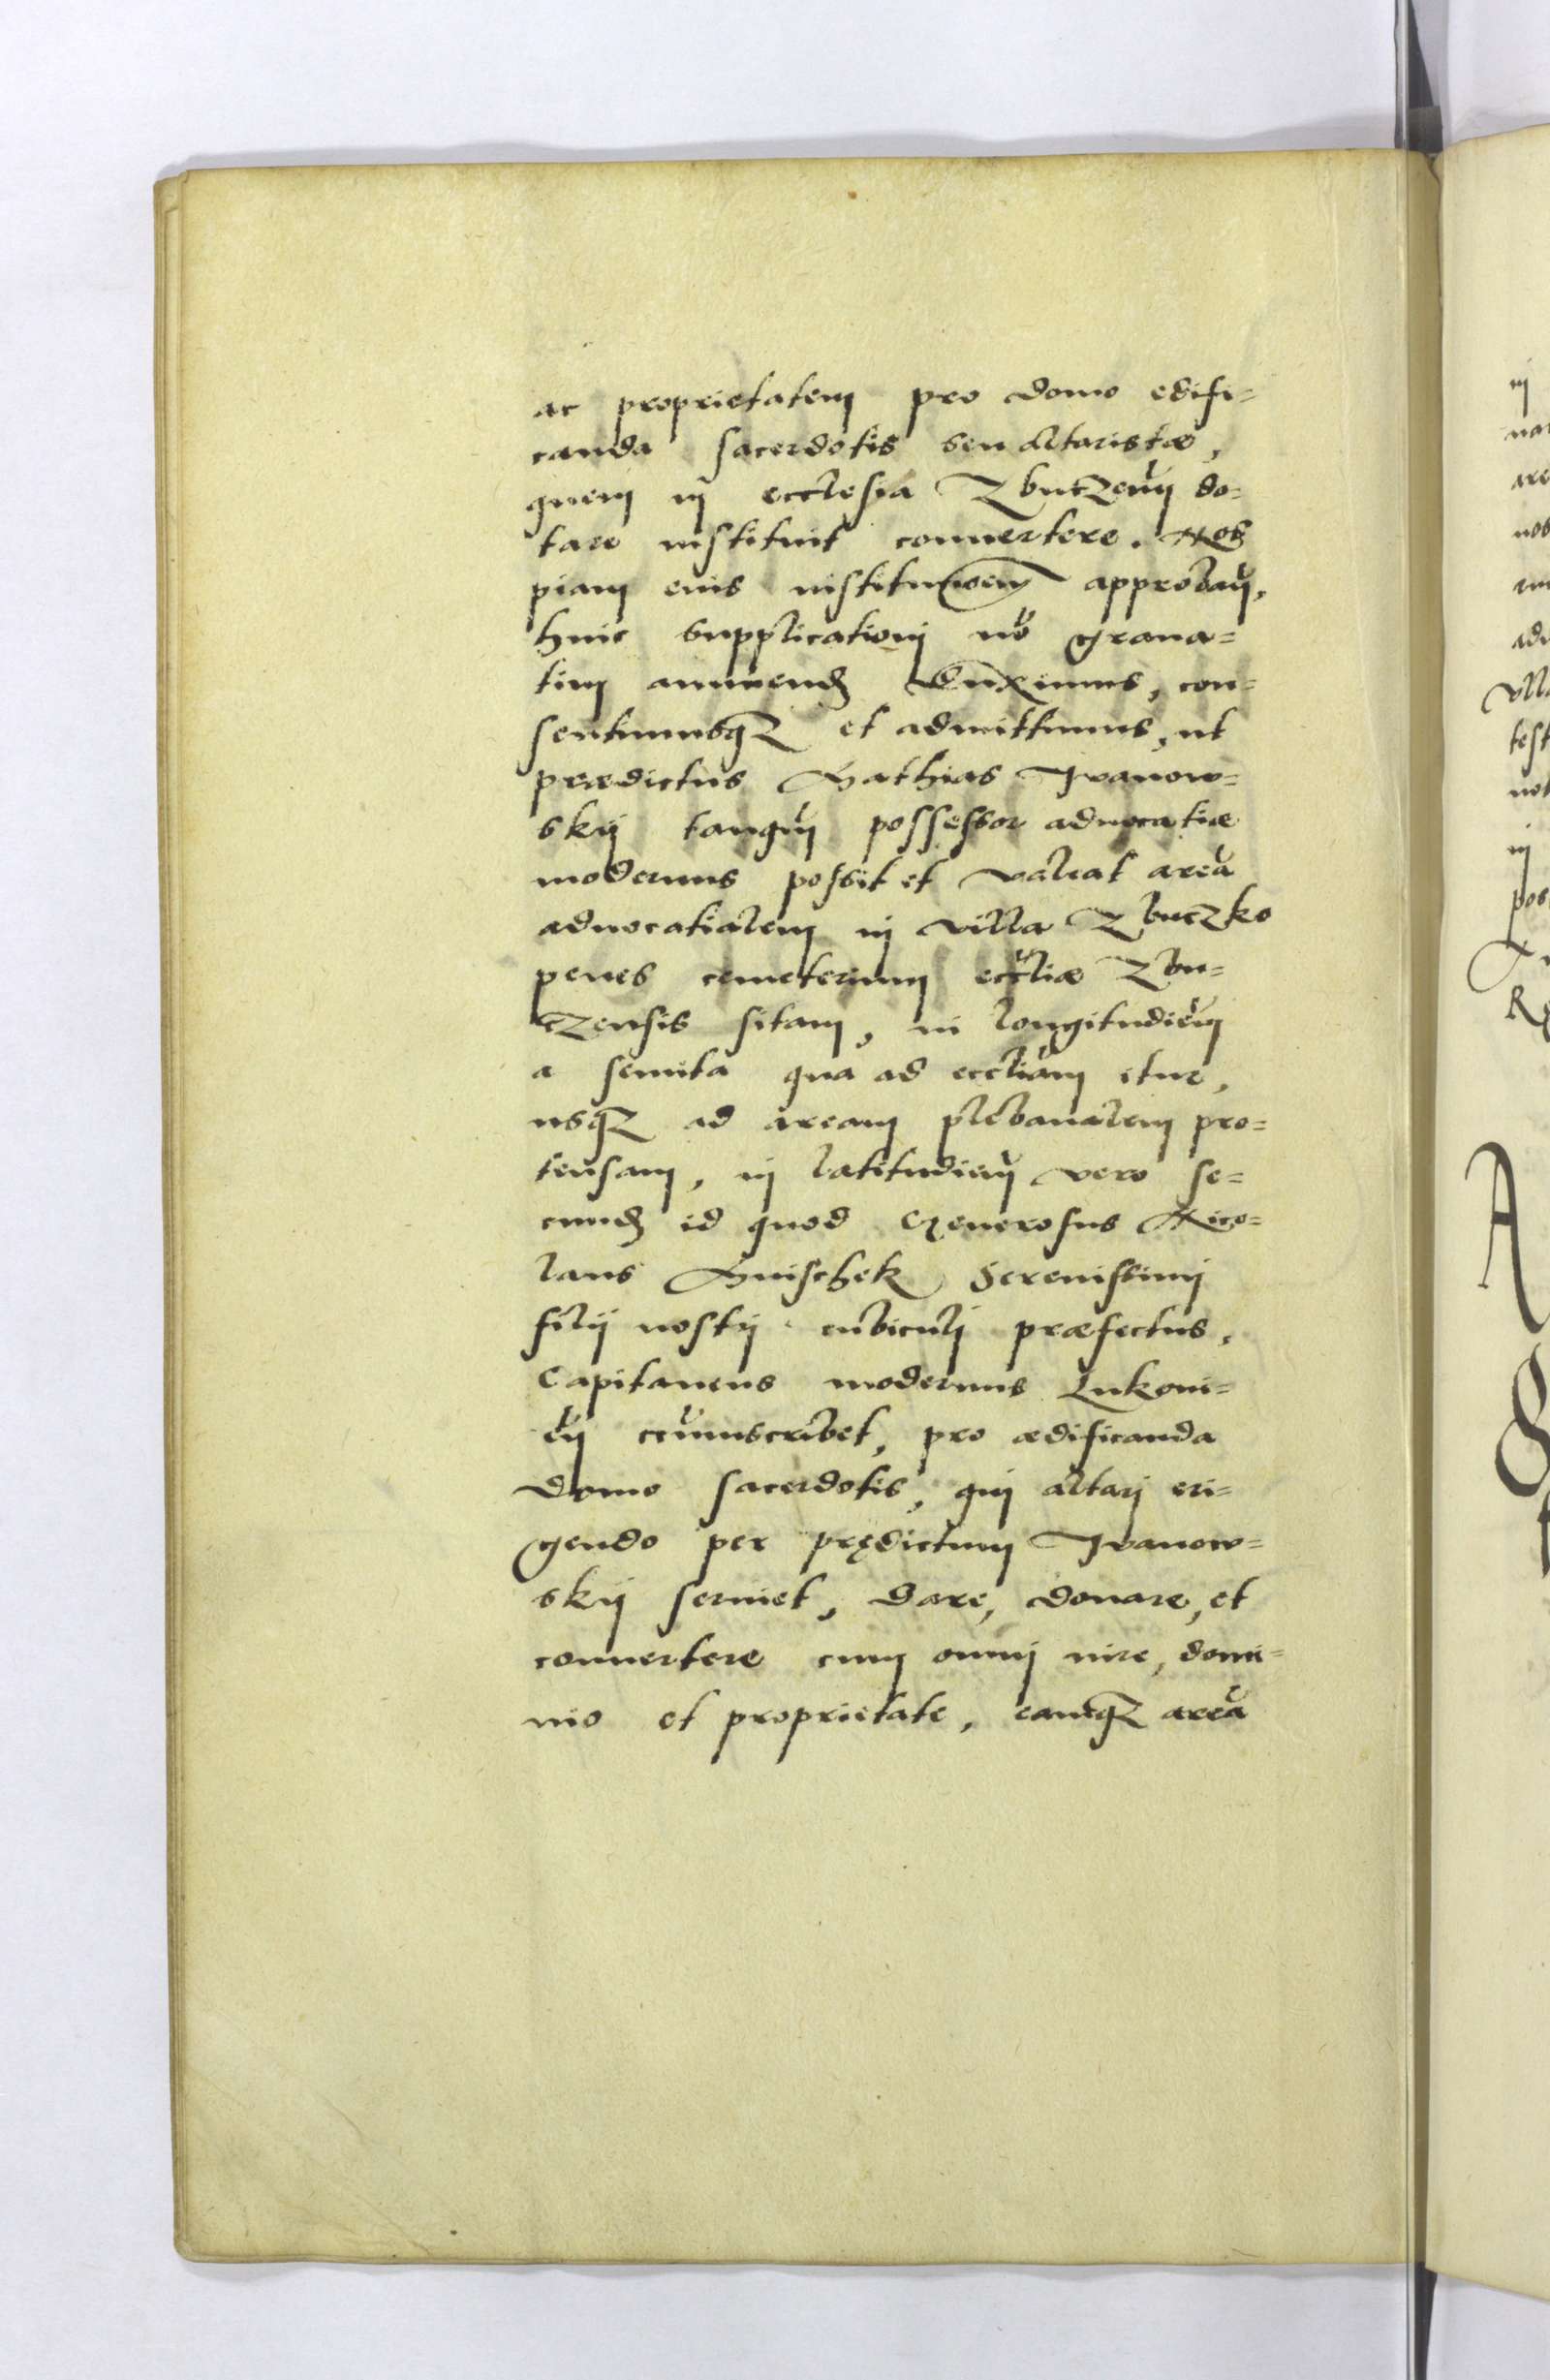 ac proprietatem pro domo edifi=
canda sacerdotis seu Altaristæ,
quem in ecclesia Zbuczen̄ do=
tare instituit conuertere. Nos
piam eius institucioem approban̄,
huic supplicationi nō graua=
tim annuend duximus, con=
sentimusqz et admittimus, ut
prædictus Mathias Iwanow=
skij tanqm̄ possessor aduocatiæ
modernus possit et valeat areā
aduocatialem in villa Zbuczko
penes cemeterium eccliæ Zbu=
czensis sitam, in longitudiem̄
a semita qua ad eccliam itur,
usqz ad aream plebanalem pro=
tensam, in latitudiem̄ vero se=
cund id quod Generosus Nico=
laus Mnischek Serenissimi
filij nostrj cubiculj præfectus,
Capitaneus modernus Lukoui=
en̄ ccūmscribet, pro ædificanda
domo sacerdotis, qui altarj eri=
gendo per prędictum Iwanow=
skij seruiet, dare, donare, et
conuertere cum omnj iure, domi=
nio et proprietate, eamqz areā